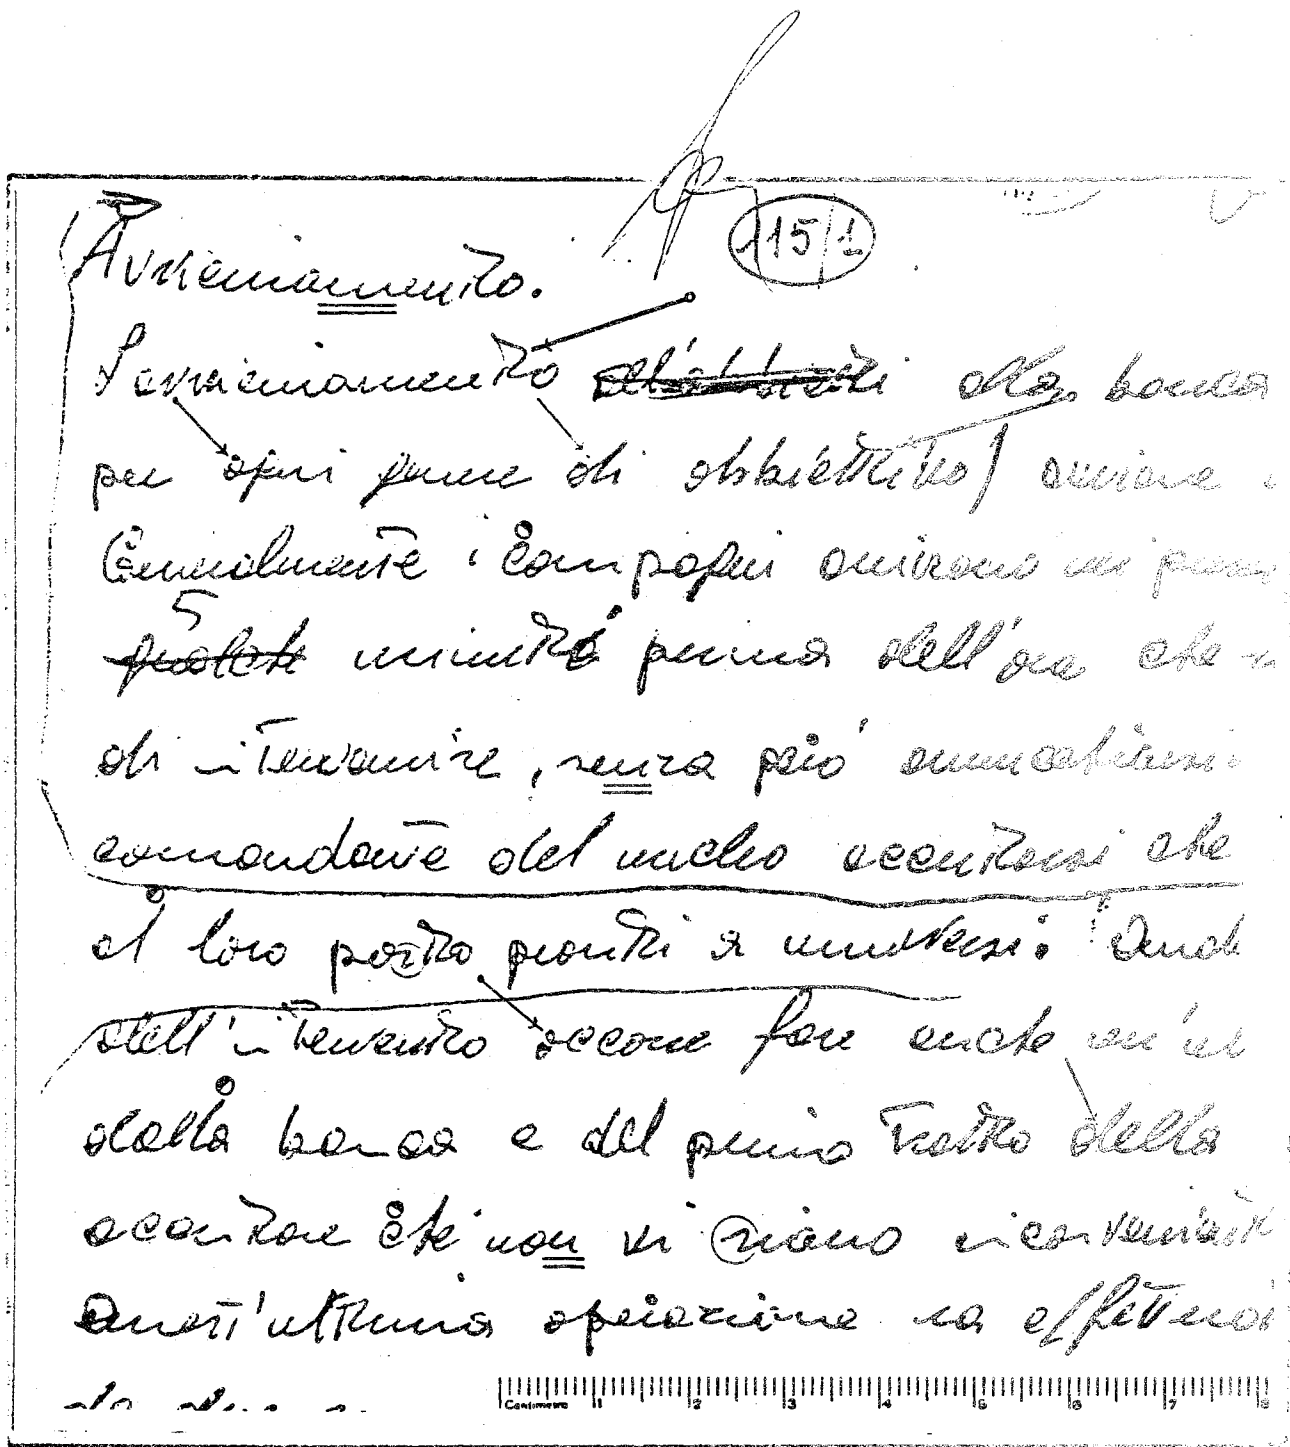 115/1
Avvicinamento.
L'avvicinamento alla banca
per ogni genere di obbiettivo avviene
Generalmente i compagni arrivano
5 minuti prima dell'ora che
di intervenire, senza però ammucchiarsi.
comandante del nucleo accertarsi che
al loro posto pronti a muoversi.
dell'intervento occorre fare anche un'
della banca e del primo tratto della
accertare che non vi siano inconvenienti
Quest'ultima operazione va
Centimetre 1 2 3 4 5 6 7 8